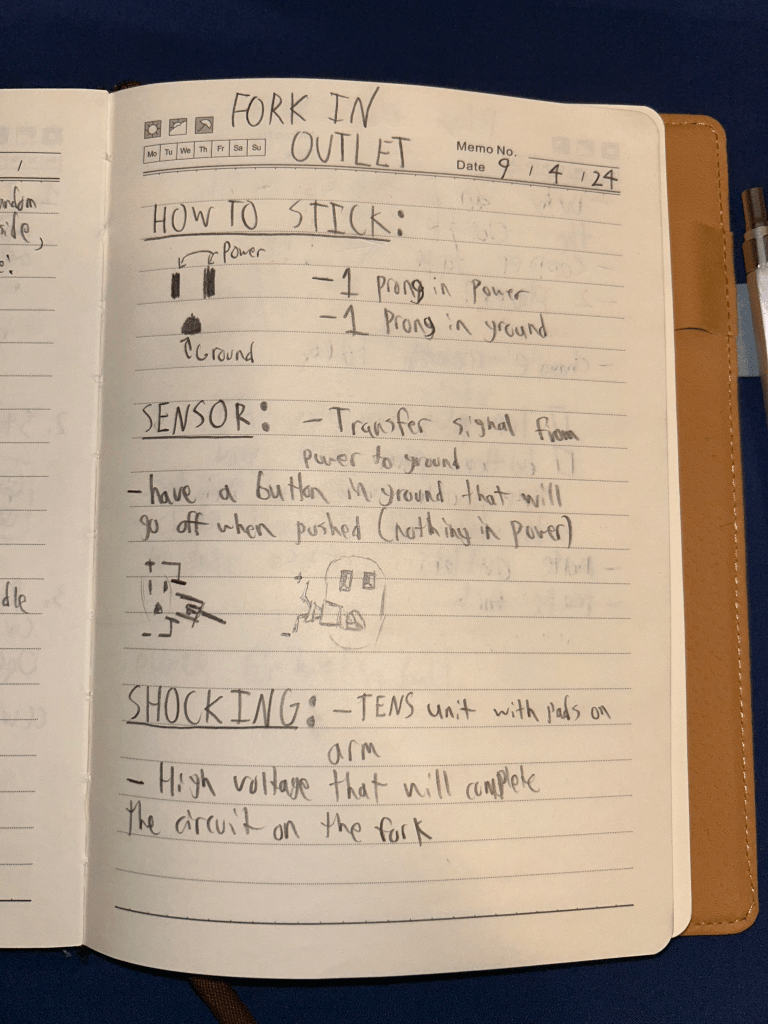 FORK IN
OUTLET
Mo Tu We Th Fr Sa Su
Memo No.
Date 9 / 4 / 24
HOW TO STICK:
Power
- 1 Prong in Power
- 1 Prong in ground
Ground
SENSOR: - Transfer signal from
power to ground
- have a button in ground that will
go off when pushed (nothing in power)
+
-
+
-
SHOCKING: - TENS unit with pads on
arm
- High voltage that will complete
the circuit on the fork